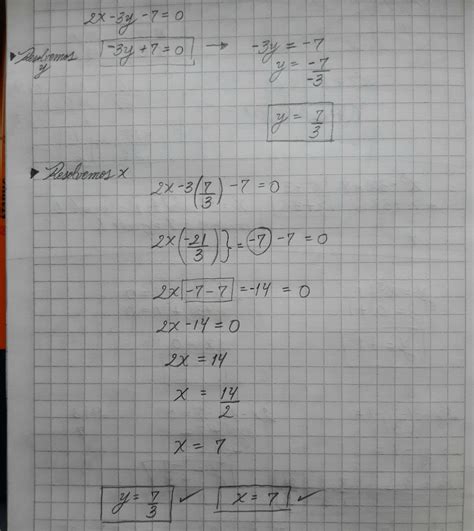 2x - 3y - 7 = 0
▸ Resolvemos y
-3y + 7 = 0 → -3y = -7
y = -7/-3
y = 7/3
▸ Resolvemos x
2x - 3(7/3) - 7 = 0
2x(-21/3)} = -7 - 7 = 0
2x -7 - 7 = -14 = 0
2x - 14 = 0
2x = 14
x = 14/2
x = 7
y = 7/3 ✓ x = 7 ✓